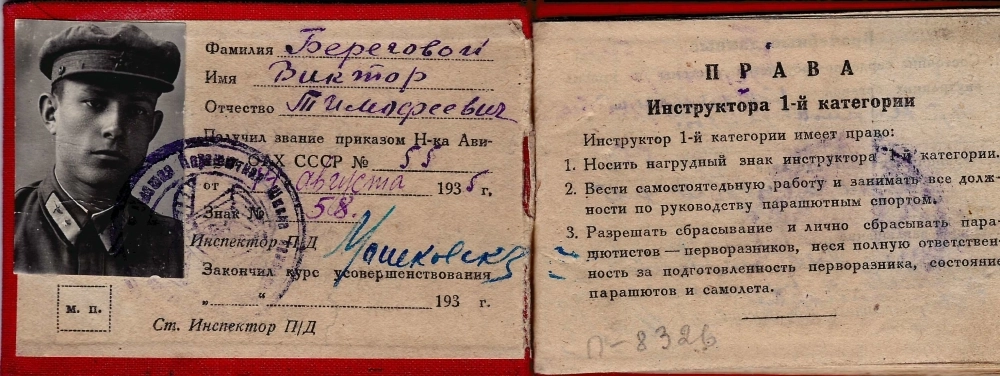 Фамилия Береговой
Имя Виктор
Отчество Тимофеевич
Получил звание приказом Н-ка Ави-
ОАХ СССР № 55
от августа 1935 г.
Знак № 58
Инспектор П/Д
Закончил курс усовершенствования
„ “ 193 г.
м. п.
Ст. Инспектор П/Д
ПРАВА
Инструктора 1-й категории
Инструктор 1-й категории имеет право:
1. Носить нагрудный знак инструктора 1-й категории.
2. Вести самостоятельную работу и занимать все долж-
ности по руководству парашютным спортом.
3. Разрешать сбрасывание и лично сбрасывать пара-
шютистов — перворазников, неся полную ответствен-
ность за подготовленность перворазника, состояние
парашютов и самолета.
П-8326